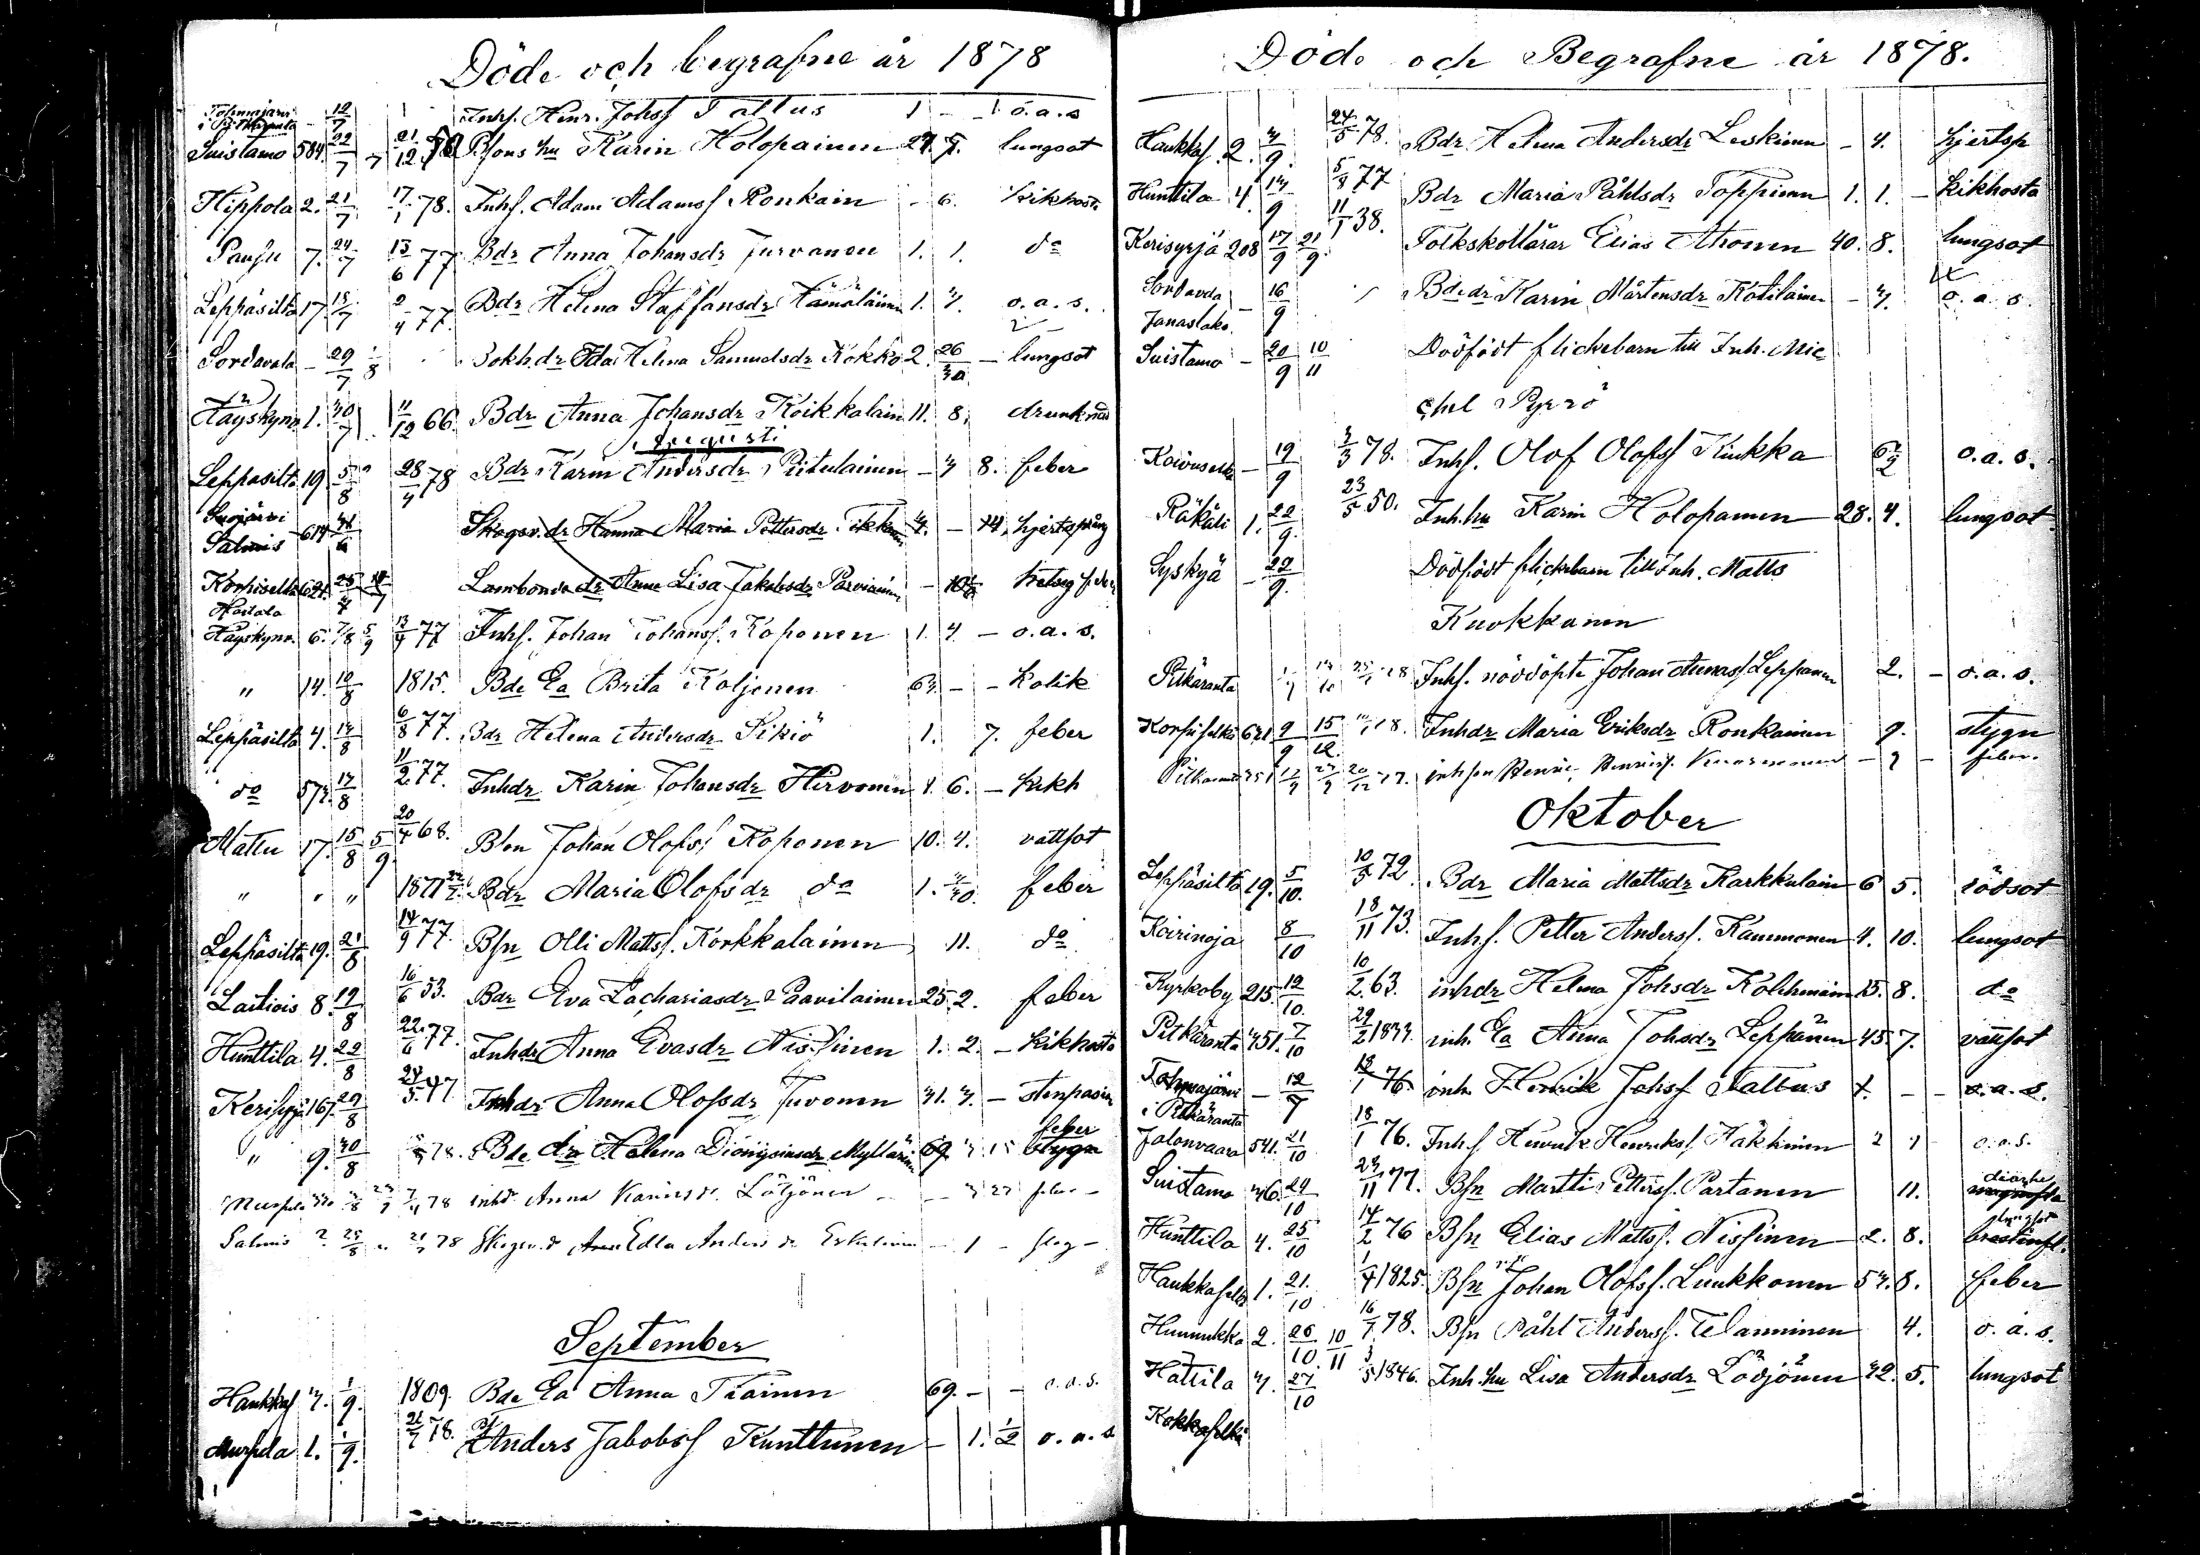 Döde och begrafne år 1878
Tohmajärvi i Pitkäranta - 12/7 Inhs. Henr. Johss Tattus 1 - - o.a.s
Suistamo 584 22/7 21/12 Bsons hu Karin Holopainen 27. 7. lungsot
Hippola 2. 21/7 17/1 78. Inhs. Adam Adamss Ronkain - 6. kikhosta
Pausu 7. 24/7 13/6 77 Bdr Anna Johansdr Jurvanen 1. 1. do
Leppäsilta 17 18/7 2/4 77. Bdr Helena Staffansdr Hämäläinen 1. 3. o.a.s.
Sordavala - 29/7 1/8 Bokh.dr Ida Helena Samuelsdr Kokko 2. 26/30 - lungsot
Häyskynm 1. 30/7 11/12 66. Bdr Anna Johansdr Koikkalain 11. 8. drunknad
Augusti
Leppäsilta 19 5/8 28/4 78 Bdr Karin Andersdr Pitulainen - 3 8. feber
Suojärvi Salmis 614 Skogsv. dr Hanna Maria Pettersdr Tikkanen 4. - 14. hjertsprång
Korpiselkä 621. 25/4 Lambonde dr Anna Lisa Jakobsdr Parviainen -
Häyskynm. 6. 7/8 5/9 13/4 77 Inhs. Johan Johanss. Koponen 1. 4. - o.a.s.
" 14. 10/8 1815. Bde Ea Brita Koljonen 63. - - Kolik
Leppäsilta 4. 14/8 6/8 77. Bdr Helena Andersdr Sikiö 1. 7. feber
do 573. 17/8 11/2 77. Inhdr Karin Johansdr Hirvonen 1. 6. - kikh
Alattu 17. 15/8 5/9 20/4 68. Bson Johan Olofss. Koponen 10. 4. vattsot
" " " 1877 Bdr Maria Olofsdr do 1. feber
Leppäsilta 19. 21/8 14/9 77. Bsn Olli Mattss. Korkkalainen 11. do
Laitiois 8. 19/8 16/6 53. Bdr Eva Zachariasdr Paavilainen 25. 2. feber
Hunttila 4. 22/8 22/6 77. Inhdr Anna Evasdr Nissinen 1. 2. - kikhosta
Kerisyrjä 167. 29/8 24/5 47 Inhdr Anna Olofsdr Juvonen 31. 3. - stenpassion
" 9. 30/8 78. Bde dr Helena Dionysiusdr Myllärinen 69. 3 15 feber stygn
Mursula 78 inhdr Anna Löljönen - - 3 27 feber -
Salmis ? 25/8 78 Skogsv. dr Edla Anders dr Eskelinen - 1 - slag -
September
Haukkas 3. 1/9. 1809. Bde Ea Anna Tiainen 69. - - o.a.s.
Mursula 1. 1/9. 21/7 78. Anders Jakobss Kunttunen - 1. 1/2 o.a.s
Döde och Begrafne år 1878.
Haukkas 2. 3/9. 24/5 78. Bdr Helena Andersdr Leskinen - 4. hjertsp
Hunttila 4. 13/9 5/8 77 Bdr Maria Påhlsdr Toppinen 1. 1. - kikhosta
Kerisyrjä 208 17/9 21/9. 11/1 38. Folkskollärar Elias Ahonen 40. 8. lungsot
Sordavala Janaslaks - 16/9 Bdedr Karin Mårtensdr Kotilainen - 3. o.a.s.
Suistamo - 20/9 10/11 Dödfödt flickebarn till Inh. Mic
chel Pyrrö
Koivuselkä - 19/9 3/3 78. Inhs. Olof Olofss Kiukka 6 1/2 o.a.s.
Räkäli 1. 22/9. 23/5 50. Inh.hu Karin Holopainen 28. 4. lungsot
Syskyä - 22/9. Dödfödt flickebarn till Inh. Matts
Kuokkanen
Pitkäranta Inhs. nöddöpte Johan Leppänen 2. - o.a.s.
Korpiselkä 621 9/9 15/12 Inhdr Maria Eriksdr Ronkainen 9. stygn
Pitkäranta 351 20/12 77. inhson Henric feber.
Oktober
Leppäsilta 19. 5/10. 10/5 72. Bdr Maria Mattsdr Karkkulain 6 5. rödsot
Koirinoja 8/10 18/11 73. Inhs. Petter Anderss. Kammonen 4. 10. lungsot
Kyrkoby 215. 12/10. 10/2 63. inhdr Helena Johsdr Kolehmain 15. 8. do
Pitkäranta 351. 7/10 29/2 1833. inh. Ea Anna Johsdr Leppänen 45. 7. vattsot
Tohmajärvi i Pitkäranta - 12/7 18/1 76 inh. Henrik Johss Tattus 1. - - o.a.s.
Jalonvaara 541. 21/10 18/1 76. Inhs Henrik Henrikss. Häkkinen 2 9 - o.a.s.
Suistamo 36. 24/10 23/11 77. Bsn Martti Petterss. Partanen 11. diarhe
Hunttila 4. 25/10 14/2 76 Bsn Elias Mattss. Nissinen 2. 8. lungsot bröstinfl.
Haukkaselkä 1. 21./10 1/4 1825. Bsn Johan Olofss. Luukkonen 53. 8. feber
Hunnukka 2. 26/10. 10/11 16/7 78. Bsn Påhl Anderss. Telanninen 4. o.a.s.
Hatula 3. 27/10 3/5 1846. Inh.hu Lisa Andersdr Lödjönen 32. 5. lungsot
Kokkaselkä